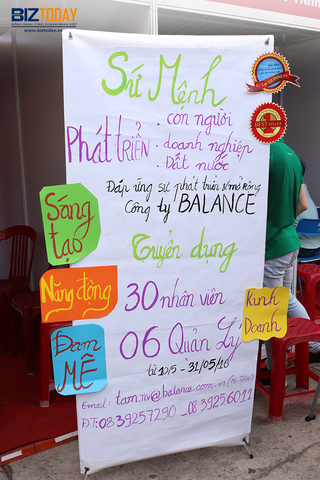 BIZTODAY
www.biztoday.vn
Sứ Mệnh
Phát TRIỂN
. con người
. doanh nghiệp
. Đất nước
Đáp ứng sự phát triển & mở Rộng
Công ty BALANCE
Sáng tạo
Tuyển dụng
Năng động
30 nhân viên
Đam MÊ
06 Quản Lý
Kinh Doanh
từ 10/5 - 31/05/16
Email: tam.nv@balance.com.vn (Mr Tâm)
ĐT: 08 39257290 _ 08 39256011
BEST SELLER